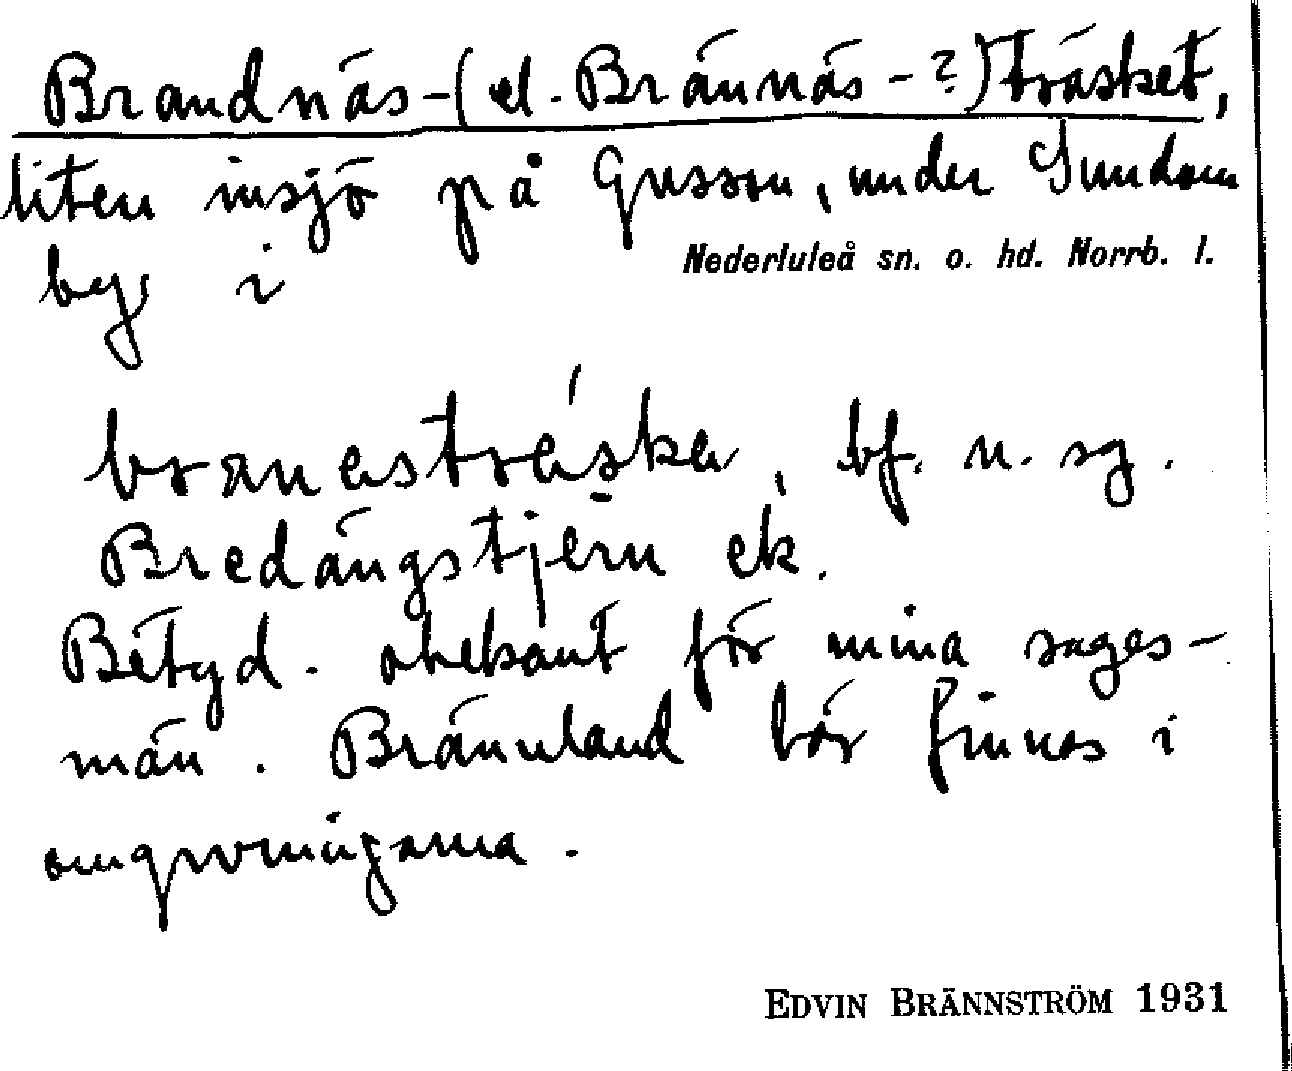 Brandnäs-(el. Brännäs-?)träsket,
liten insjö på Gusson, under Sundom
by i Nederluleå sn. o. hd. Norrb. l.
branestrèska, bf. n. sg.
Bredängstjern ek.
Betyd. obekant för mina sages-
män. Brännland bör finnas i
omgivningarna.
EDVIN BRÄNNSTRÖM 1931